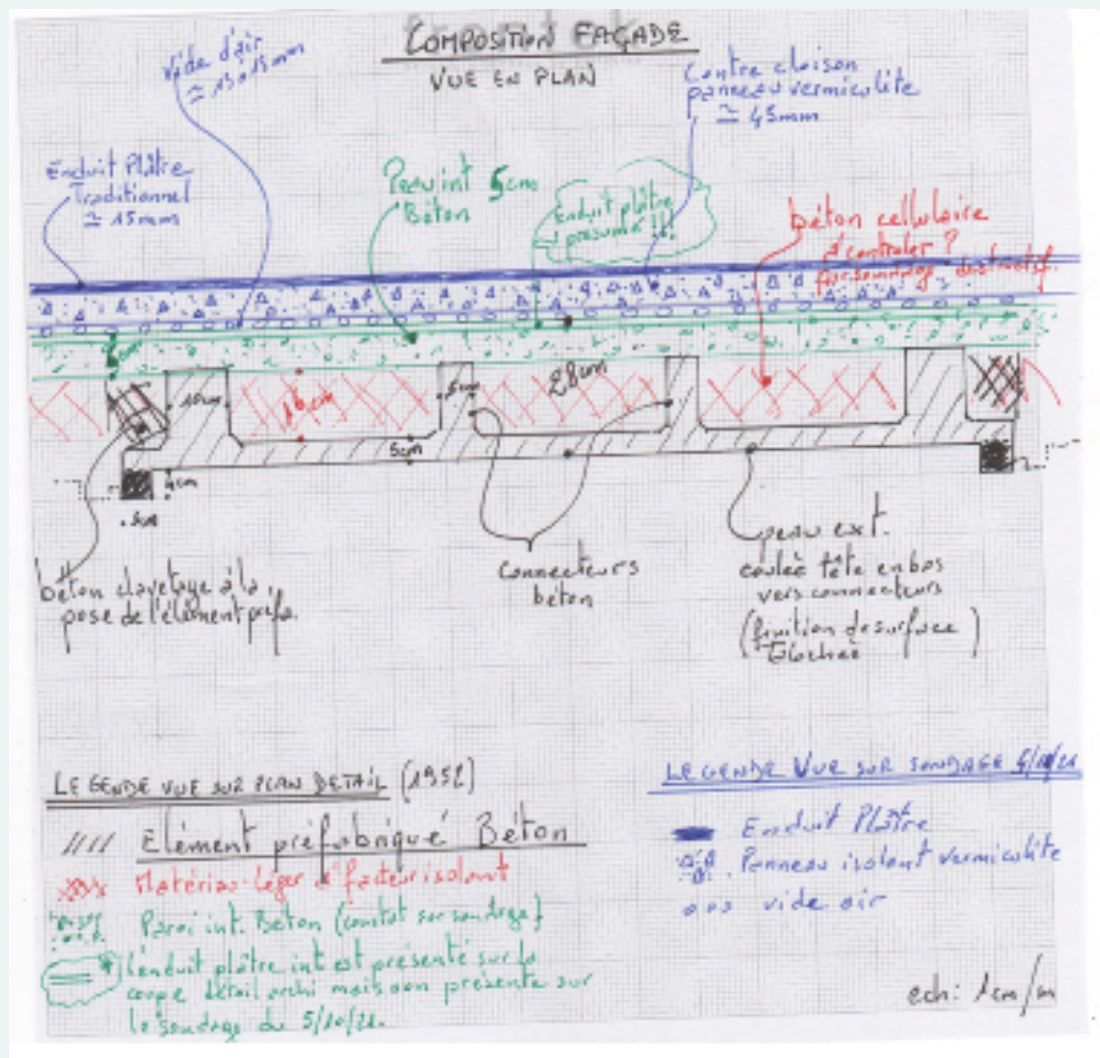 COMPOSITION FAÇADE
VUE EN PLAN
Vide d'air
Contre cloison
panneau vermiculite
≃ 45mm
Enduit Plâtre
Traditionnel
≃ 15mm
Paroi int 5cm
Béton
Enduit plâtre
présumé !!!
béton cellulaire
à contrôler ?
par sondage destructif.
10cm
16cm
5cm
28cm
5cm
4cm
5cm
béton clavetage à la
pose de l'élément préfa.
Connecteurs
béton
peau ext.
coulée tête en bas
vers connecteurs
(finition de surface
talochée)
LEGENDE VUE SUR PLAN DETAIL (1952)
//// Elément préfabriqué Béton
Matériau léger à facteur isolant
Paroi int. Béton (constat sur sondage)
l'enduit plâtre int est présenté sur la
coupe détail archi mais non présente sur
le sondage du 5/10/21.
LEGENDE VUE SUR SONDAGE
Enduit Plâtre
Panneau isolant vermiculite
vide air
ech: 1cm/m